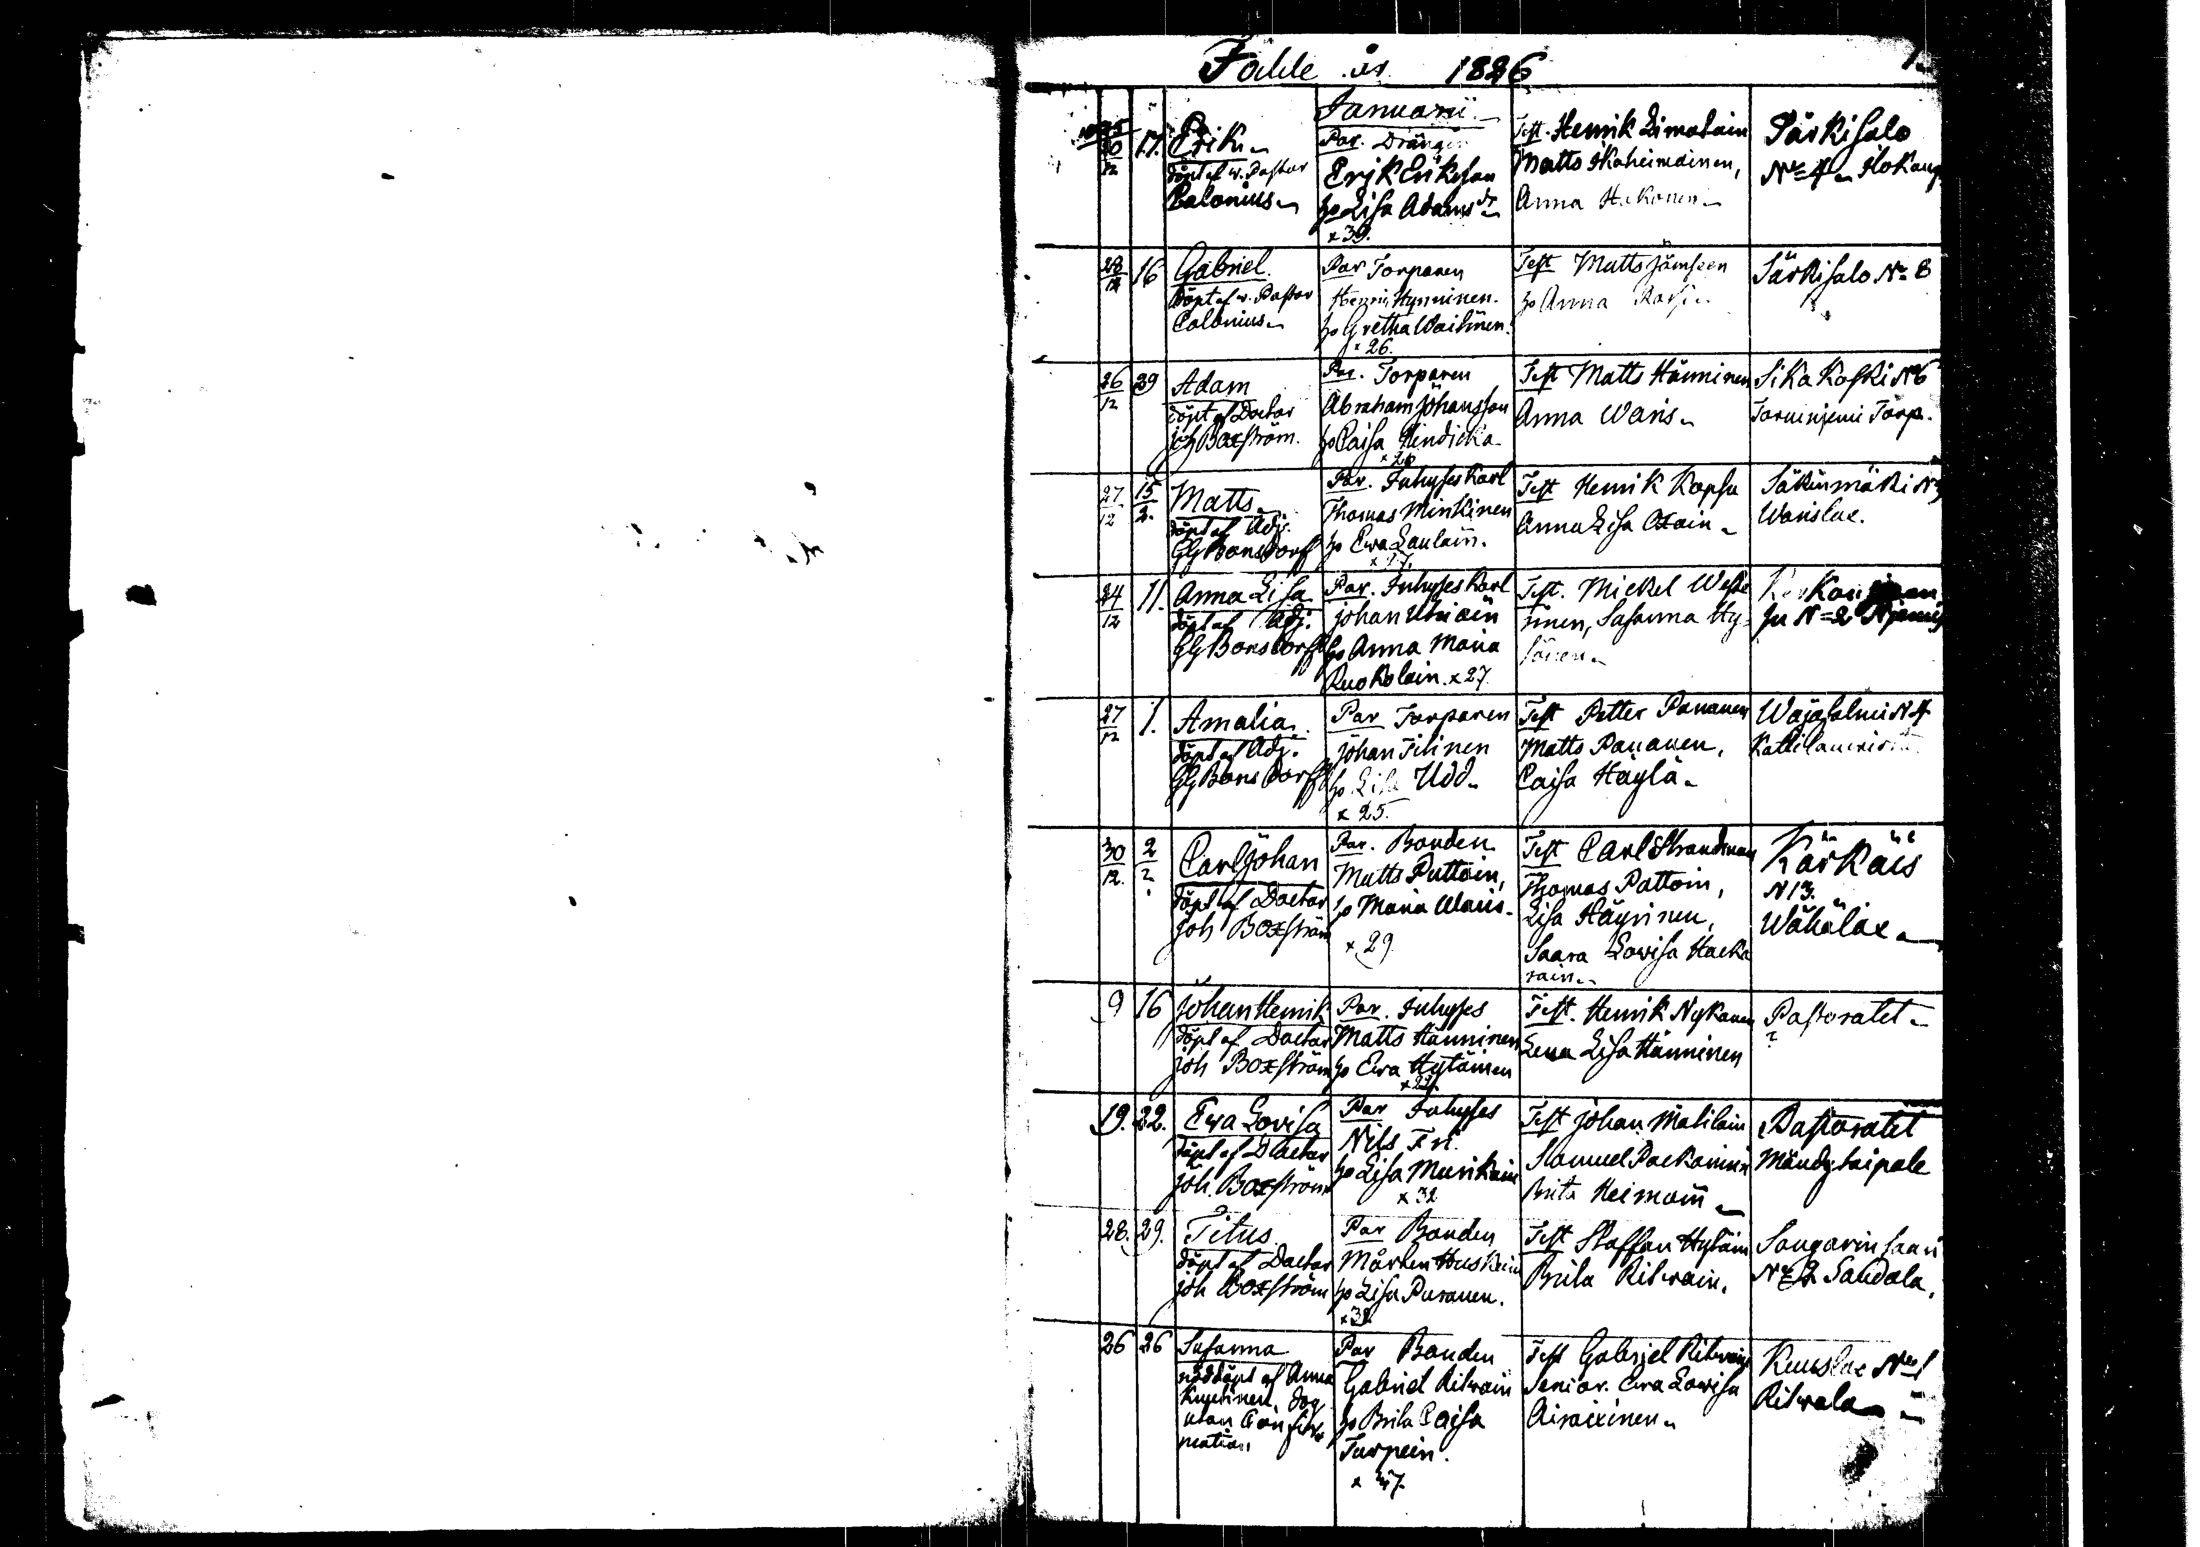 Födde år 1826
1.
Januarii
1825
30/12 17. Erik
döpt af v. Pastor
Calonius
Par. Drängen
Erik Eriksson
ho Lisa Adamsdr
x 39.
Test. Henrik Limatain
Matts Ikäheimoinen,
Anna Hakonen
Särkisalo
No 4
28/12 16 Gabriel
Döpt af v. Pastor
Calonius
Par Torparen
Henrik Hynninen.
ho Gretha Waitinen
x 26.
Test Matts Jämseen
ho Anna
Särkisalo No 8
26/12 29 Adam
döpt af Doctor
Joh Boxström.
Par. Torparen
Abraham Johansson
ho Caisa Hindicka
x 26
Test Matts Hänninen
Anna Waris
Sikakoski N6
Torp.
27/12 15/2. Matts
döpt af Adj.
GGBonsdorff
Par. Inhyses Karl
Thomas Minkinen
ho Ewa Laulain.
Test Henrik Kopsa
Anna Lisa
Säkinmäki N
24/12 11. Anna Lisa
döpt af Adj.
GGBonsdorff
Par. Inhyses Karl
Johan Utriain
ho Anna Maria
Ruokolain. x 27.
Test. Mickel Weste
rinen, Susanna Hy
vönen
N=2
27/12 1. Amalia
döpt af Adj.
GGBonsdorff
Par Torparen
Johan Tilinen
ho Lisa Udd
x 25.
Test Petter Pananen
Matts Pananen,
Caisa Häylä
Wäjäsalmi N4
30/12. 2/2 Carl Johan
döpt af Doctor
Joh Boxström
Par. Bonden
Matts Puttoin,
ho Maria Waris.
x 29
Test Carl Strandman
Thomas Pattoin,
Lisa Häyrinen,
Saara Lowisa Hacka
rain
Kärkäis
N 13.
Wähälax
9 16 Johan Henrik
döpt af Doctor
Joh Boxström
Par. Inhyses
Matts Hänninen
ho Ewa Hytöinen
x 29.
Test. Henrik Nykänen
Lena Lisa Hänninen
Pastoratet
?
19. 22. Ewa Lovisa
döpt af Doctor
Joh. Boxström
Par Inhyses
Nils Fri
ho Lisa Musikain
x 32
Test Johan Matilain
Samuel Packarinen
Brita Heimoin
Pastoratet
Mändytaipale
28. 29. Titus
döpt af Doctor
Joh Boxström
Par Bonden
Mårten Huskein
ho Lisa Puranen.
x 32
Test Staffan Hytöin
Brita Ritwain.
Songarinsaari
No 2 Saudala.
26 26 Susanna
nöddöpt af Anna
dog
utan Confir
mation
Par Bonden
Gabriel Ritwain
ho Brita Caisa
Turpein.
x 47.
Test Gabriel Ritwain
Senior. Ewa Lowisa
Airaixinen
Kuuslax No 1
Ritwala